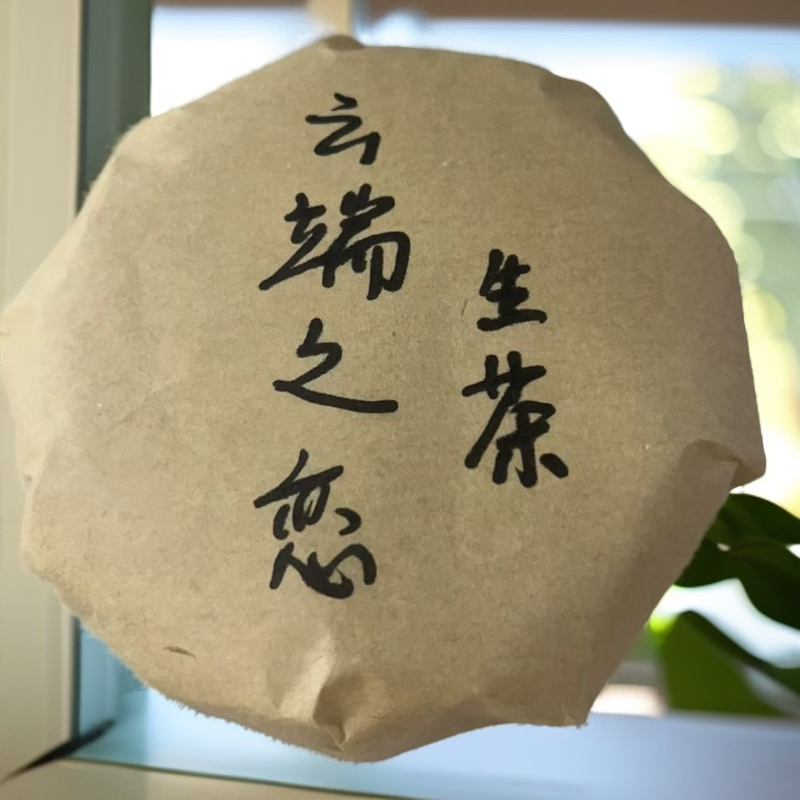 云端之恋
生茶